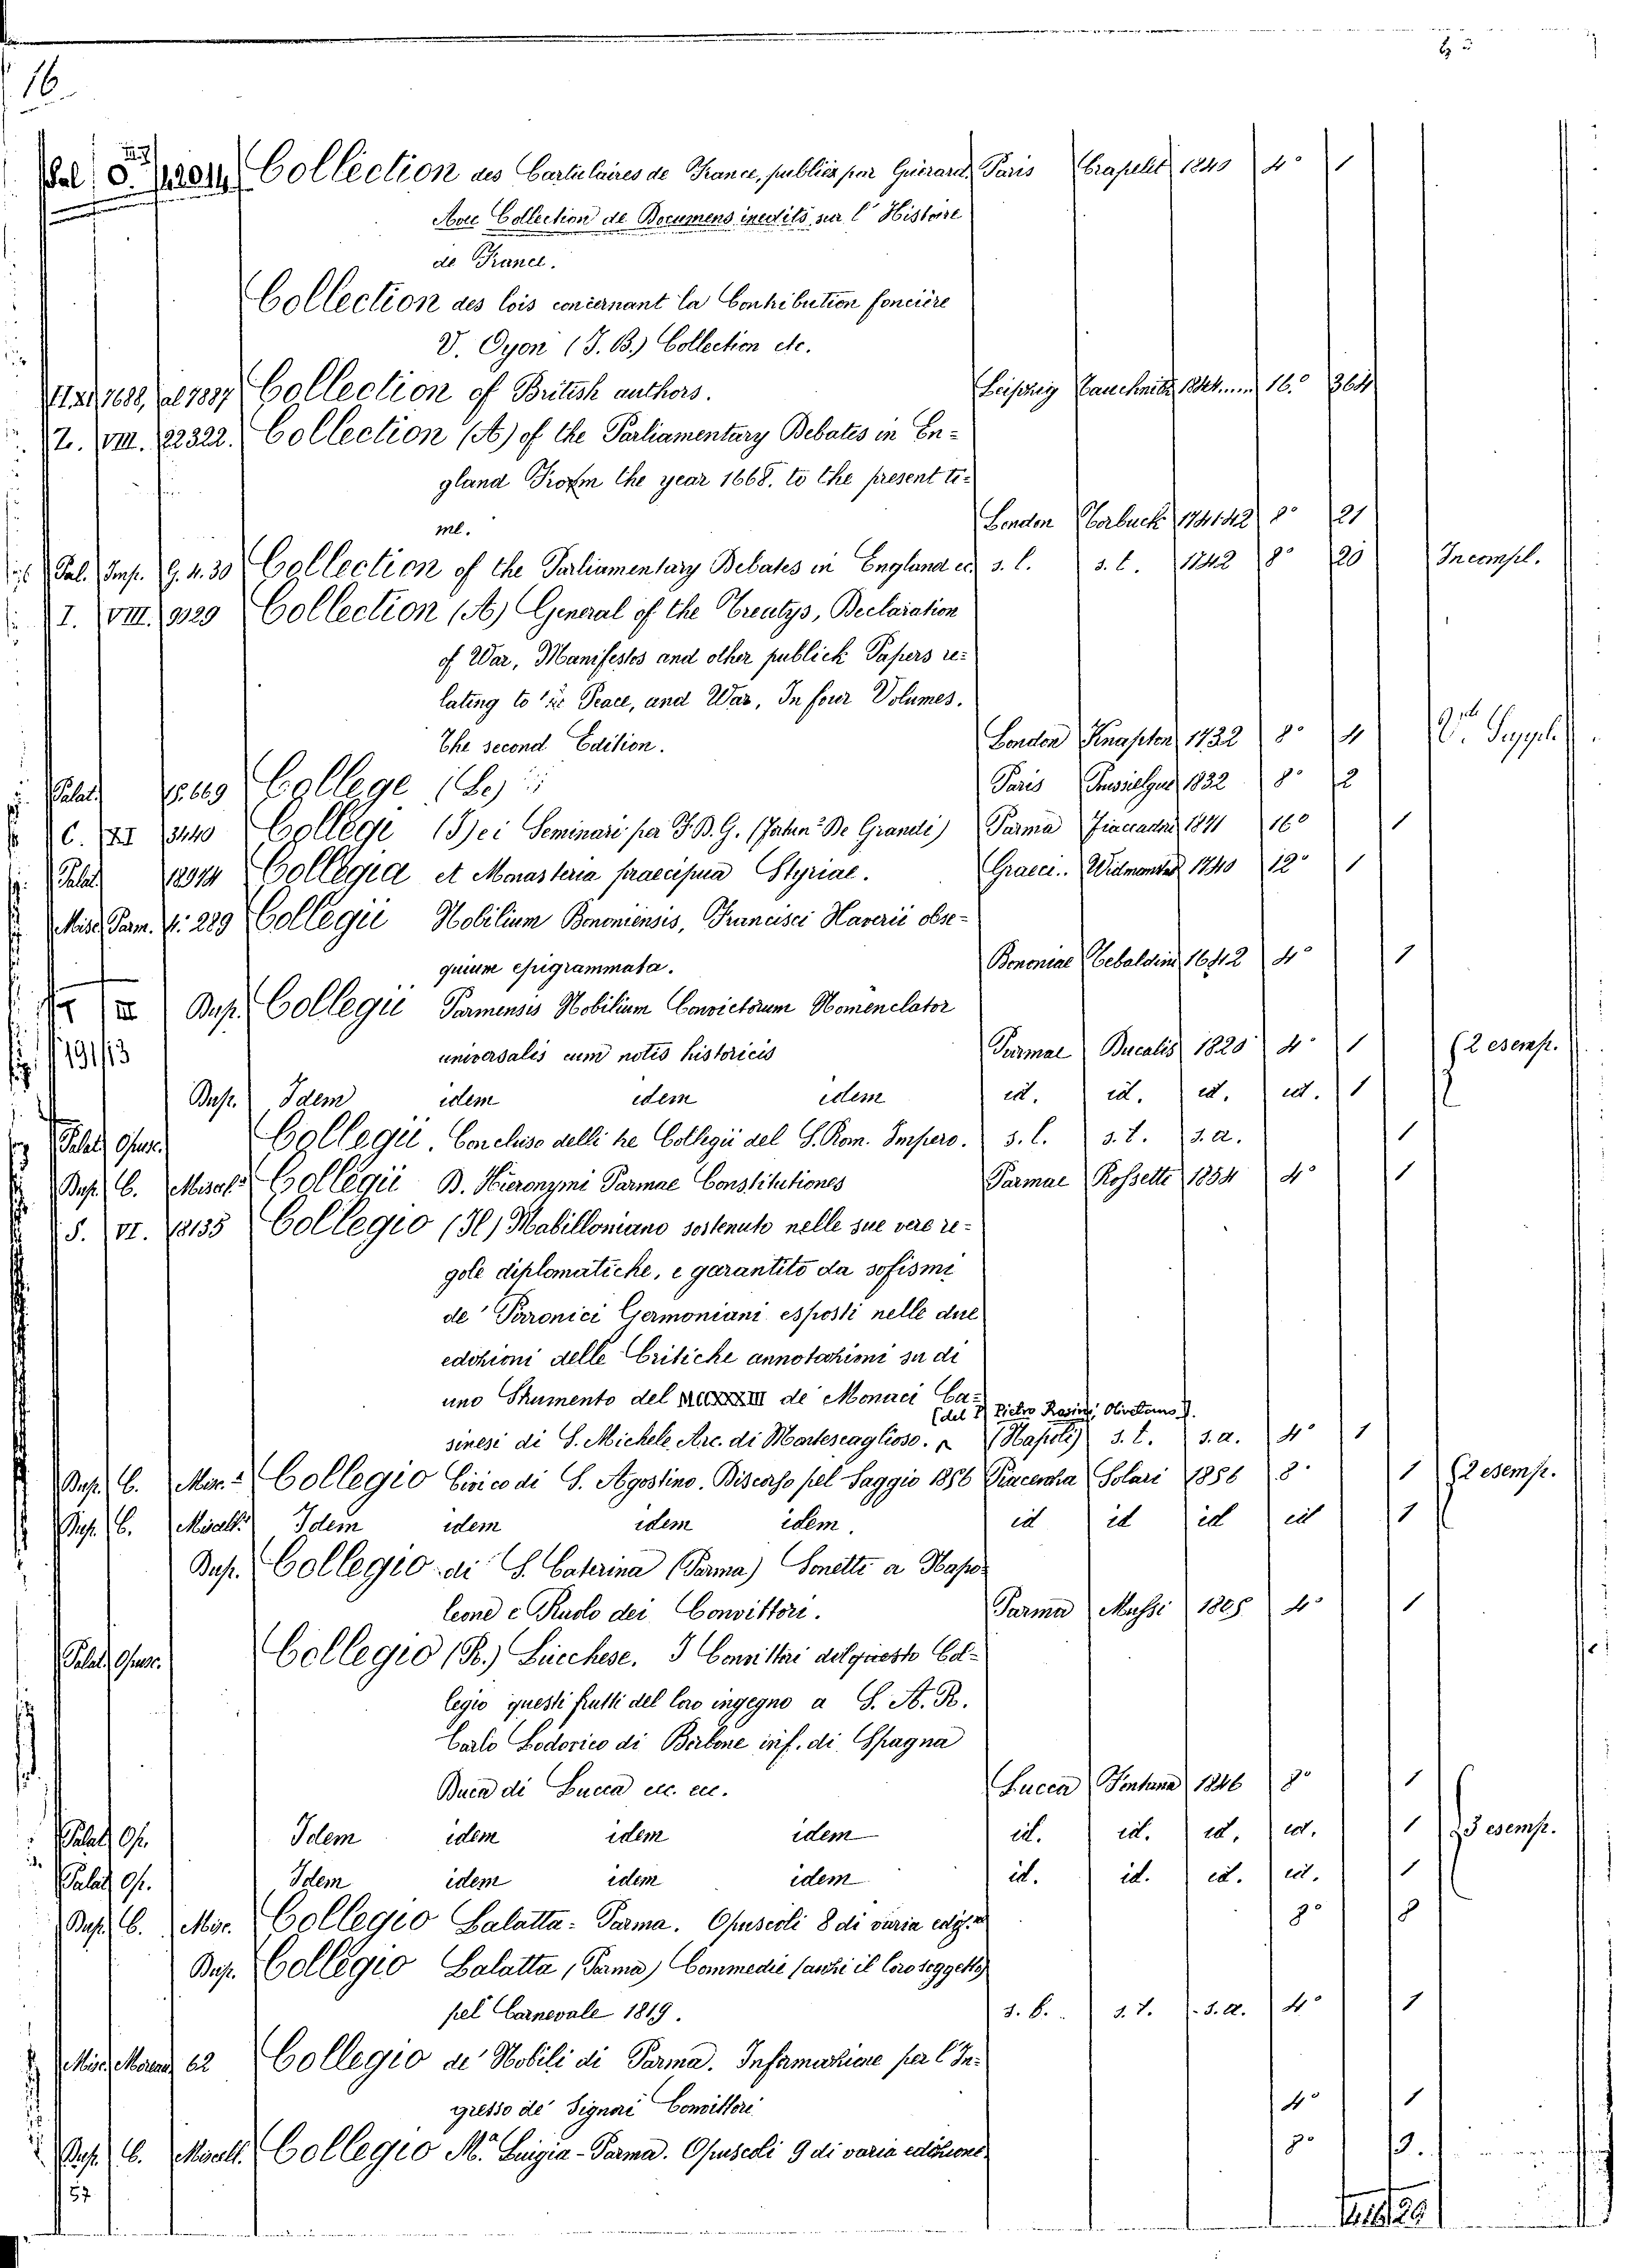 16.
Pal Collection des Cartulaires de France, publiés par Guérard Paris Crapelet 1840 4° 1
Collection de Documens inedits sur l'Histoire
de France.
Collection des lois concernant la Contribution foncière
V. Oyon (J. B.) Collection etc.
7688, al 7887 Collection of British authors. Leipzig Tauchnitz 16.° 364
Z. VIII. 22322. Collection (A) of the Parliamentary Debates in En-
gland From the year 1668. to the present ti-
me. London Torbuck 1741-42 8° 21
Pal. Imp. G. 4. 30 Collection of the Parliamentary Debates in England s. l. s. t. 1742 8° 20 Incompl.
I. VIII. 9929 Collection (A) General of the Treatys, Declaration
of War, Manifestos and other publick Papers re-
lating to Peace, and War, In four Volumes.
The second Edition. London Knapton 1732 8° 4
Palat. 15.669 College (Le) Paris 1832 8° 2
C. XI 3440 Collegi (Dei Seminari per F. B. G. De Grandi) Parma Fiaccadori 16° 1
Palat. Collegia et Monasteria praecipua Styriae. Graeci.. Widmanstad 1740 12° 1
Misc. Parm. f. 289 Collegii Nobilium Bononiensis, Francisci Xaverii obse-
quium epigrammata. Bononiae Tebaldini 1642 4° 1
III Dup. Collegii Parmensis Nobilium Convictorum Nomenclator
191/13 universalis cum notis historicis Parmae Ducalis 1820 4° 1 2 esemp.
Dup. Idem idem idem idem id. id. id. id. 1
Palat. Opusc. Collegii. Concluso delli tre Collegii del S. Rom. Impero. s. l. s. t. s. a. 1
Dup. C. Miscel. Collegii B. Hieronymi Parmae Constitutiones Parmae Rossetti 1854 4° 1
S. VI. 18135 Collegio (Il) Mabilloniano sostenuto nelle sue vere re-
gole diplomatiche, e garantito da sofismi
de' Pirronici Germoniani esposti nelle due
edizioni delle Critiche annotazioni su di
uno Strumento del de' Monaci Ca-
(del P. Pietro Rasini, Olivetano).
sinesi di S. Michele Arc. di Montescaglioso. (Napoli) s. t. s. a. 4° 1
Dup. C. Mis. Collegio Civico di S. Agostino. Discorso pel Saggio 1856 Piacenza Solari 1856 8° 1 2 esemp.
Dup. C. Miscell. Idem idem idem idem. id id id id 1
Dup. Collegio di S. Caterina (Parma) Sonetti a Napo-
leone e Ruolo dei Convittori. Parma Mussi 1805 4° 1
Palat. Opusc. Collegio (R.) Lucchese. I Convittori di questo Col-
legio questi frutti del loro ingegno a S. A. R.
Carlo Lodovico di Borbone inf. di Spagna
Duca di Lucca ec. ec. Lucca Fontana 1846 8° 1
Palat. Op. Idem idem idem idem id. id. id. id. 1 3 esemp.
Palat. Op. Idem idem idem idem id. id. id. id. 1
Dup. C. Misc. Collegio Lalatta - Parma. Opuscoli 8 di varia ediz. 8° 8
Dup. Collegio Lalatta (Parma) Commedie (anzi il loro soggetto)
pel Carnevale 1819. s. l. s. t. s. a. 4° 1
Misc. 62 Collegio de' Nobili di Parma. Informazione per l'In-
gresso de' Signori Convittori 4° 1
Dup. C. Miscell. Collegio M.ª Luigia - Parma. Opuscoli 9 di varia edizione. 8° 9.
57